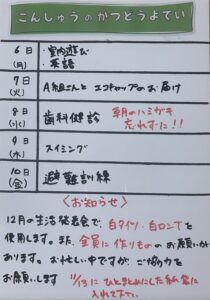 こんしゅうのかつどうよてい
6日(月) ・室内遊び
・英語
7日(火) A組さんと エコキャップのお届け
8日(水) 歯科健診 朝のハミガキ忘れずに!!
9日(木) スイミング
10日(金) 避難訓練
〈お知らせ〉
12月の生活発表会で、白タイツ・白ロンTを
使用します。また、全員に作りもののお願いが
あります。お忙しい中ですが、ご協力を
お願いします
11/13にひとまとめにした紙袋に
入れて下さい